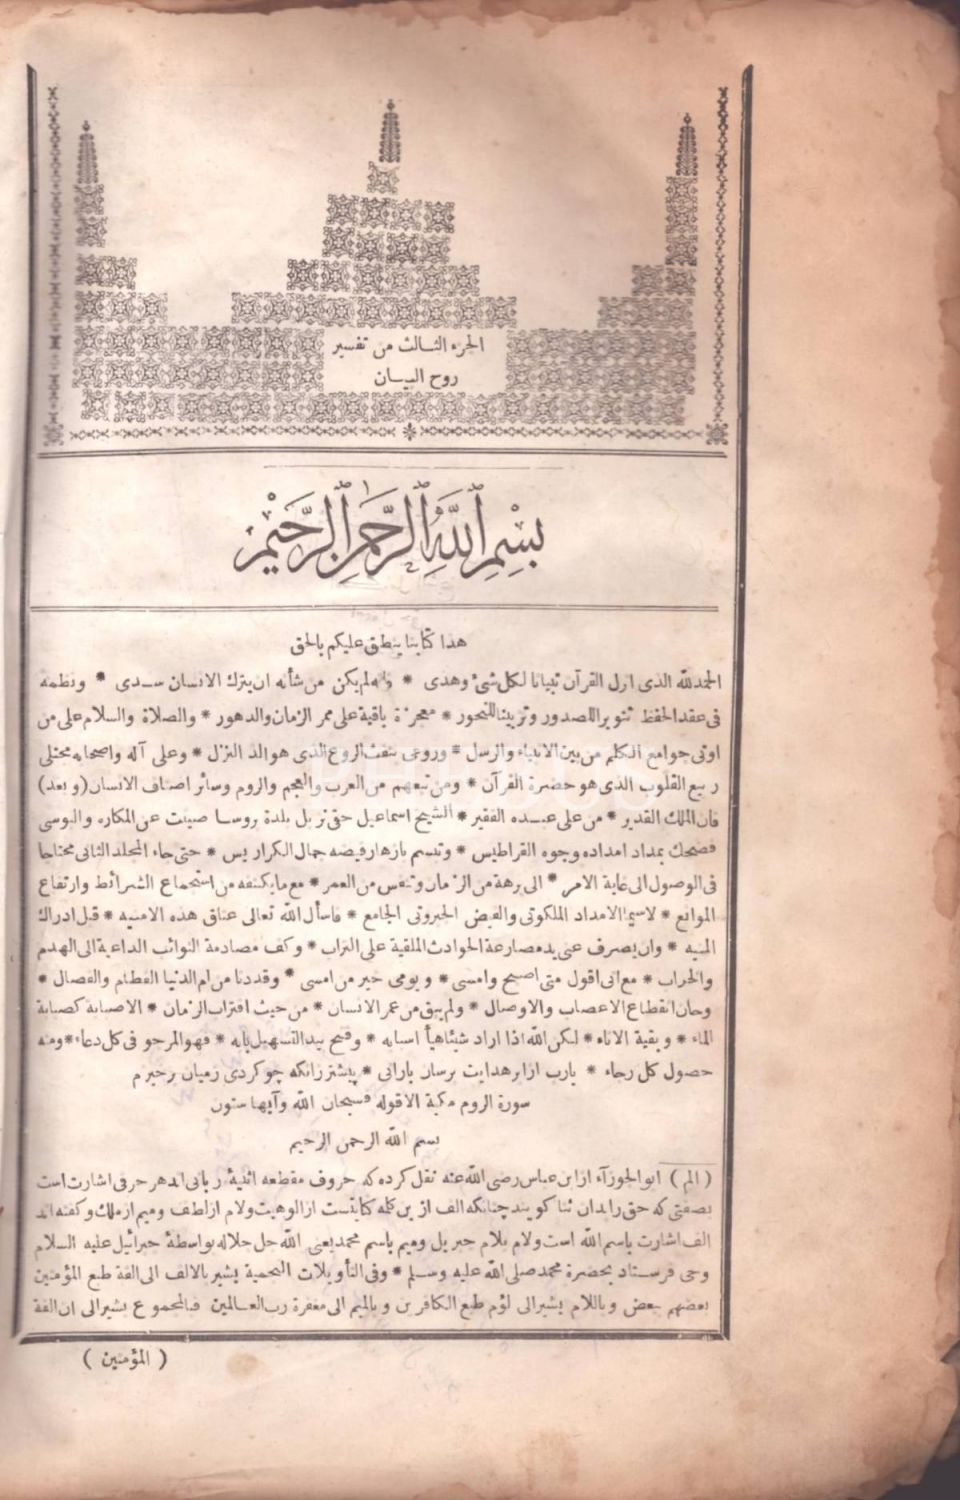 الجزء الثالث من تفسير
روح البيان
بسم الله الرحمن الرحيم
هذا كتابنا ينطق عليكم بالحق
الحمد لله الذى انزل القرآن تبيانا لكل شىء وهدى * ولم يكن من شأنه ان يترك الانسان سدى * ونظمه
فى عقد الحفظ تنويرا للصدور وتزيينا للنحور * معجزة باقية على ممر الزمان والدهور * والصلاة والسلام على من
اوتى جوامع الكلم من بين الانبياء والرسل * وروعى بنفث الروع الذى هو الذ النزل * وعلى آله واصحابه مجتلى
ربيع القلوب الذى هو حضرة القرآن * ومن تبعهم من العرب والعجم والروم وسائر اصناف الانسان (وبعد)
فان الملك القدير * من على عبده الفقير * الشيخ اسماعيل حقى نزيل بلدة بروسا صينت عن المكاره والبوسى
فضحك بمداد امداده وجوه القراطيس * وتبسم بازهار فيضه جمال الكراريس * حتى جاء المجلد الثانى محتاجا
فى الوصول الى غاية الامر * الى برهة من الزمان وتنفس من العمر * مع ما يكتنفه من استجماع الشرائط وارتفاع
الموانع * لاسيما الامداد الملكوتى والفيض الجبروتى الجامع * فاسأل الله تعالى عناق هذه الامنيه * قبل ادراك
المنيه * وان يصرف عنى يد مصارعة الحوادث الملقية على التراب * وكف مصادمة النوائب الداعية الى الهدم
والخراب * مع انى اقول متى اصبح وامسى * ويومى خير من امسى * وقد دنا من ام الدنيا الفطام والفصال *
وحان انقطاع الاعصاب والاوصال * ولم يبق من عمر الانسان * من حيث اقتراب الزمان * الاصبابة كصبابة
الماء * وبقية الاناء * لكن الله اذا اراد شيئا هيأ اسبابه * وفتح بيد التسهيل بابه * فهو المرجو فى كل دعاء * ومنه
حصول كل رجاء * يارب از ابر هدايت برسان بارانى * پيشتر زانكه چو كردى زميان برخيزم
سورة الروم مكية الا قوله فسبحان الله وآيها ستون
بسم الله الرحمن الرحيم
(الم) ابو الجوزآء از ابن عباس رضى الله عنه نقل كرده كه حروف مقطعه اثنيۀ ربانى اند هر حرفى اشارت است
بصفتى كه حق را بدان ثنا كويند چنانكه الف ازين كله كنايتست از الوهيت ولام از لطف وميم از ملك وكفته اند
الف اشارت باسم الله است ولام بلام جبريل وميم باسم محمد يعنى الله جل جلاله بواسطۀ جبرائيل عليه السلام
وحى فرستاد بحضرة محمد صلى الله عليه وسلم * وفى التأويلات النجمية يشير بالالف الى الفة طبع المؤمنين
بعضهم ببعض وباللام يشير الى لؤم طبع الكافرين وبالميم الى مغفرة رب العالمين فبالمجموع يشير الى ان الفة
( المؤمنين )